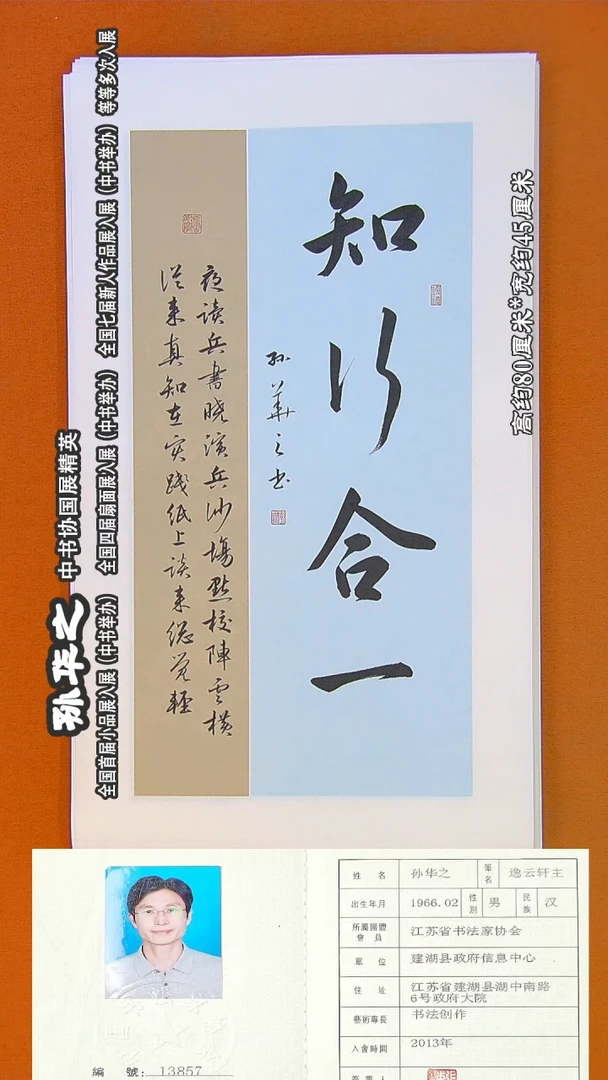 知行合一
孙華之书
夜读兵書晓演兵沙場點校陣雲横
從来真知在实践纸上谈来總觉轻
高约80厘米*宽约45厘米
孙华之
中书协国展精英
全国首届小品展入展（中书举办） 全国四届扇面展入展（中书举办） 全国七届新人作品展入展（中书举办） 等等多次入展
姓 名 孙华之 筆名 逸云轩主
出生年月 1966.02 性別 男 民族 汉
所屬團體會員 江苏省书法家协会
單 位 建湖县政府信息中心
住 址 江苏省建湖县湖中南路6号政府大院
藝術專長 书法创作
入會時間 2013年
編 號：13857